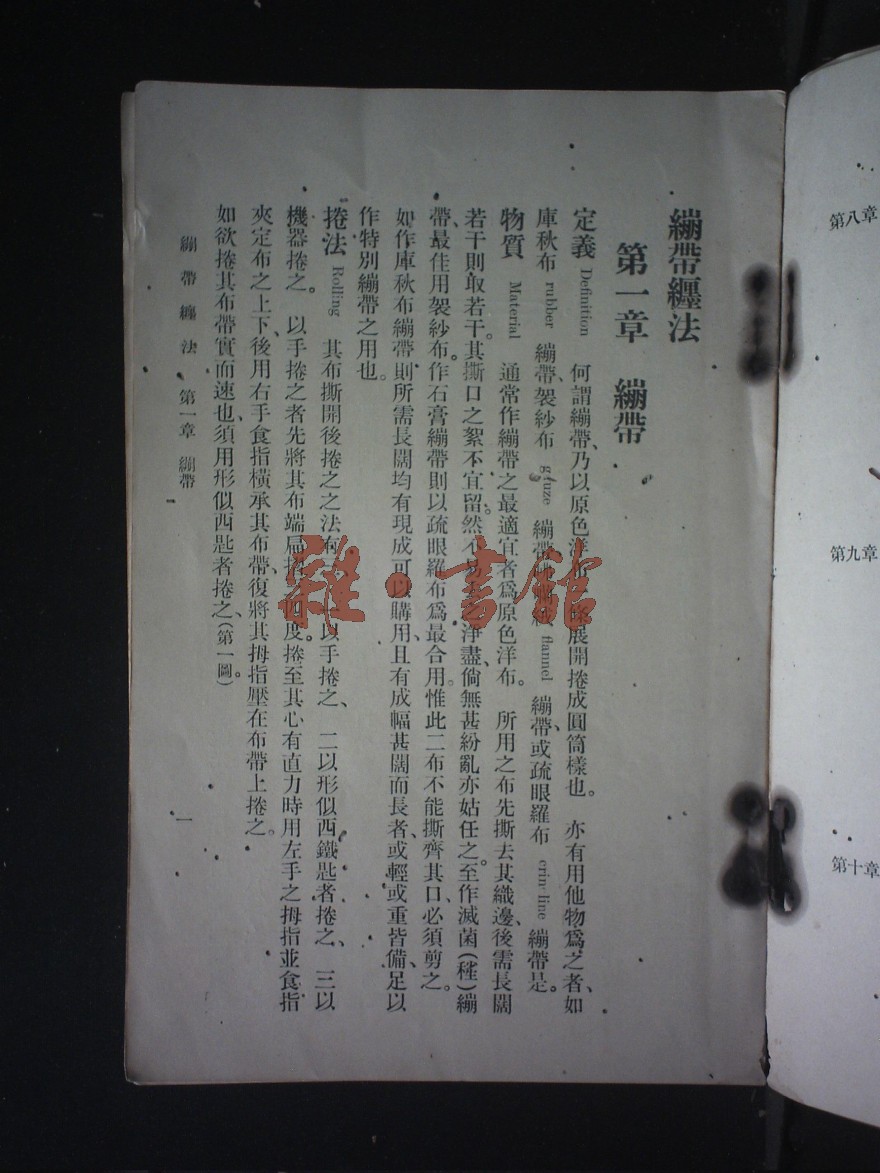 繃帶纏法
第一章　繃帶
定義 Definition　何謂繃帶、乃以原色洋布　展開捲成圓筒樣也。　亦有用他物爲之者、如
庫秋布 rubber 繃帶、袈紗布 gauze 繃帶、　絨 flannel 繃帶、或疏眼羅布 crinoline 繃帶是。
物質 Material　通常作繃帶之最適宜者爲原色洋布。　所用之布先撕去其織邊、後需長闊
若干則取若干。其撕口之絮不宜留。然不易　淨盡、倘無甚紛亂亦姑任之。至作滅菌(種)繃
帶、最佳用袈紗布。作石膏繃帶則以疏眼羅布爲最合用。惟此二布不能撕齊其口、必須剪之。
如作庫秋布繃帶則所需長闊均有現成可以購用、且有成幅甚闊而長者、或輕或重皆備、足以
作特別繃帶之用也。
捲法 Rolling　其布撕開後捲之之法有三、　以手捲之、　二以形似西鐵匙者捲之、　三以
機器捲之。　以手捲之者先將其布端扁摺　四度。捲至其心有直力時用左手之拇指並食指
夾定布之上下、後用右手食指橫承其布帶、復將其拇指壓在布帶上捲之。
如欲捲其布帶實而速也、須用形似西匙者捲之、(第一圖)
繃帶纏法　第一章　繃帶
一
第八章
第九章
第十章
雜·書館